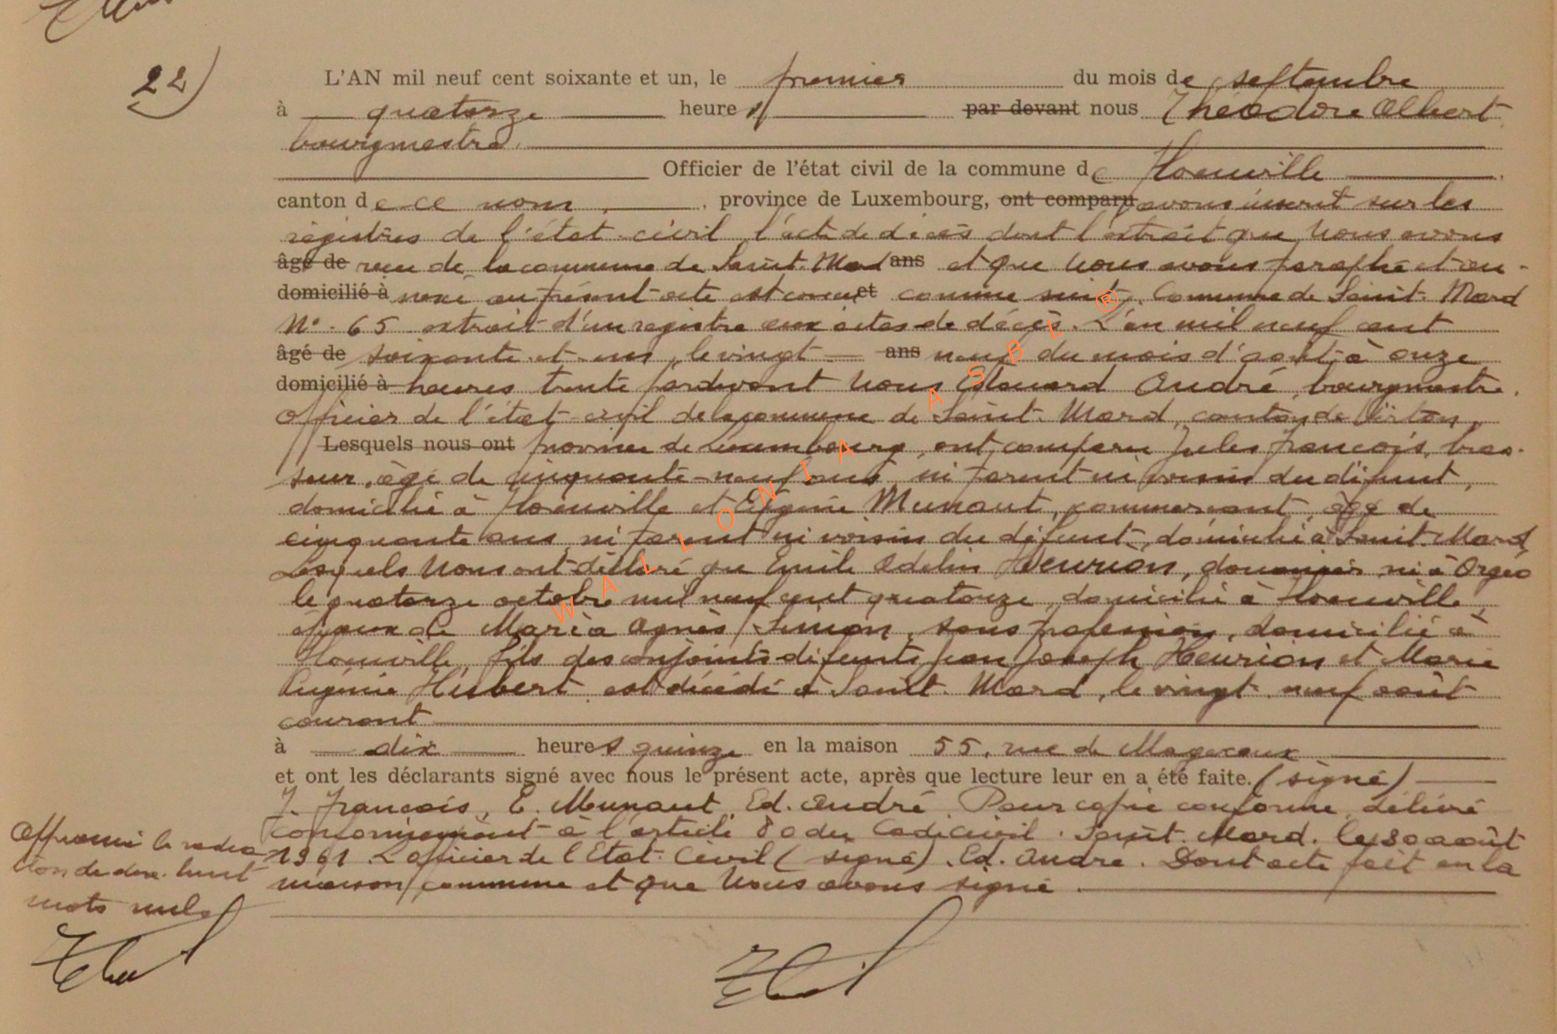 22)
L'AN mil neuf cent soixante et un, le premier du mois de septembre
à quatorze heures par devant nous Théodore Albert
bourgmestre
Officier de l'état civil de la commune de Houville
canton de ce nom, province de Luxembourg, ont comparu avons inscrit sur les
régistres de l'état-civil l'acte de décès dont l'extrait que nous avons
âgé de recu de la commune de Saint-Mard ans et que nous avons paraphé et an-
domicilié à nexé au présent acte est concu et comme suit, Commune de Saint-Mard
N° 65 extrait d'un registre aux actes de décès. L'an mil neuf cent
âgé de soixante et un, le vingt ans neuf du mois d'août, à onze
domicilié à heures trente pardevant nous Edouard André, bourgmestre
officier de l'état-civil de la commune de Saint-Mard, canton de Virton,
Lesquels nous ont province de Luxembourg, ont comparu Jules François, bras-
seur, âgé de cinquante-neuf ans, ni parent ni voisin du défunt,
domicilié à Houville et Eugène Munaut, commercant, âgé de
cinquante ans, ni parent ni voisin du défunt, domicilié à Saint-Mard
Lesquels nous ont déclaré que Emile Adelin Henrion, douanier, né à Orgeo
le quatorze octobre mil neuf cent quatorze, domicilié à Houville,
époux de Maria Agnès Simon, sans profession, domicilié à
Houville, fils des conjoints défunts Jean Joseph Henrion et Marie
Eugénie Hisbert est décédé à Saint-Mard, le vingt neuf août
courant
à dix heures quinze en la maison 55, rue de Mageroux
et ont les déclarants signé avec nous le présent acte, après que lecture leur en a été faite. (signé)
J. François, E. Munaut, Ed. André. Pour copie conforme, délivré
conformément à l'article 80 du Code civil. Saint-Mard, le 30 août
1961 L'officier de l'Etat-Civil (signé). Ed. André. Dont acte fait en la
maison commune et que nous avons signé.
Approuvé la radia
tion de dix-huit
mots nuls
WALLONIA ASBL ©